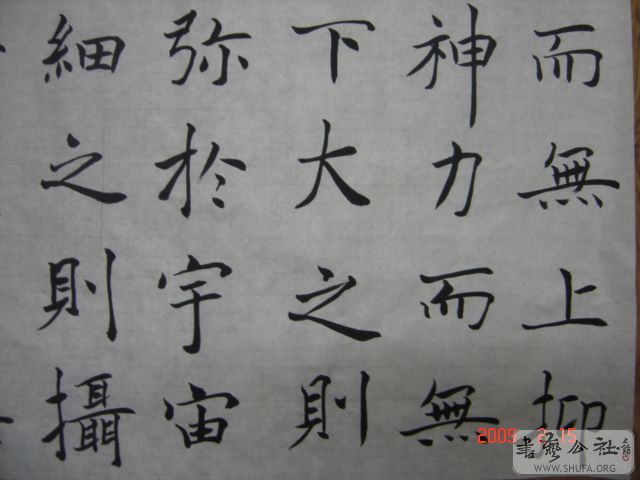 而無上抑
神力而無
下大之則
弥於宇宙
細之則攝
2009 2 15
書藝公社
WWW.SHUFA.ORG